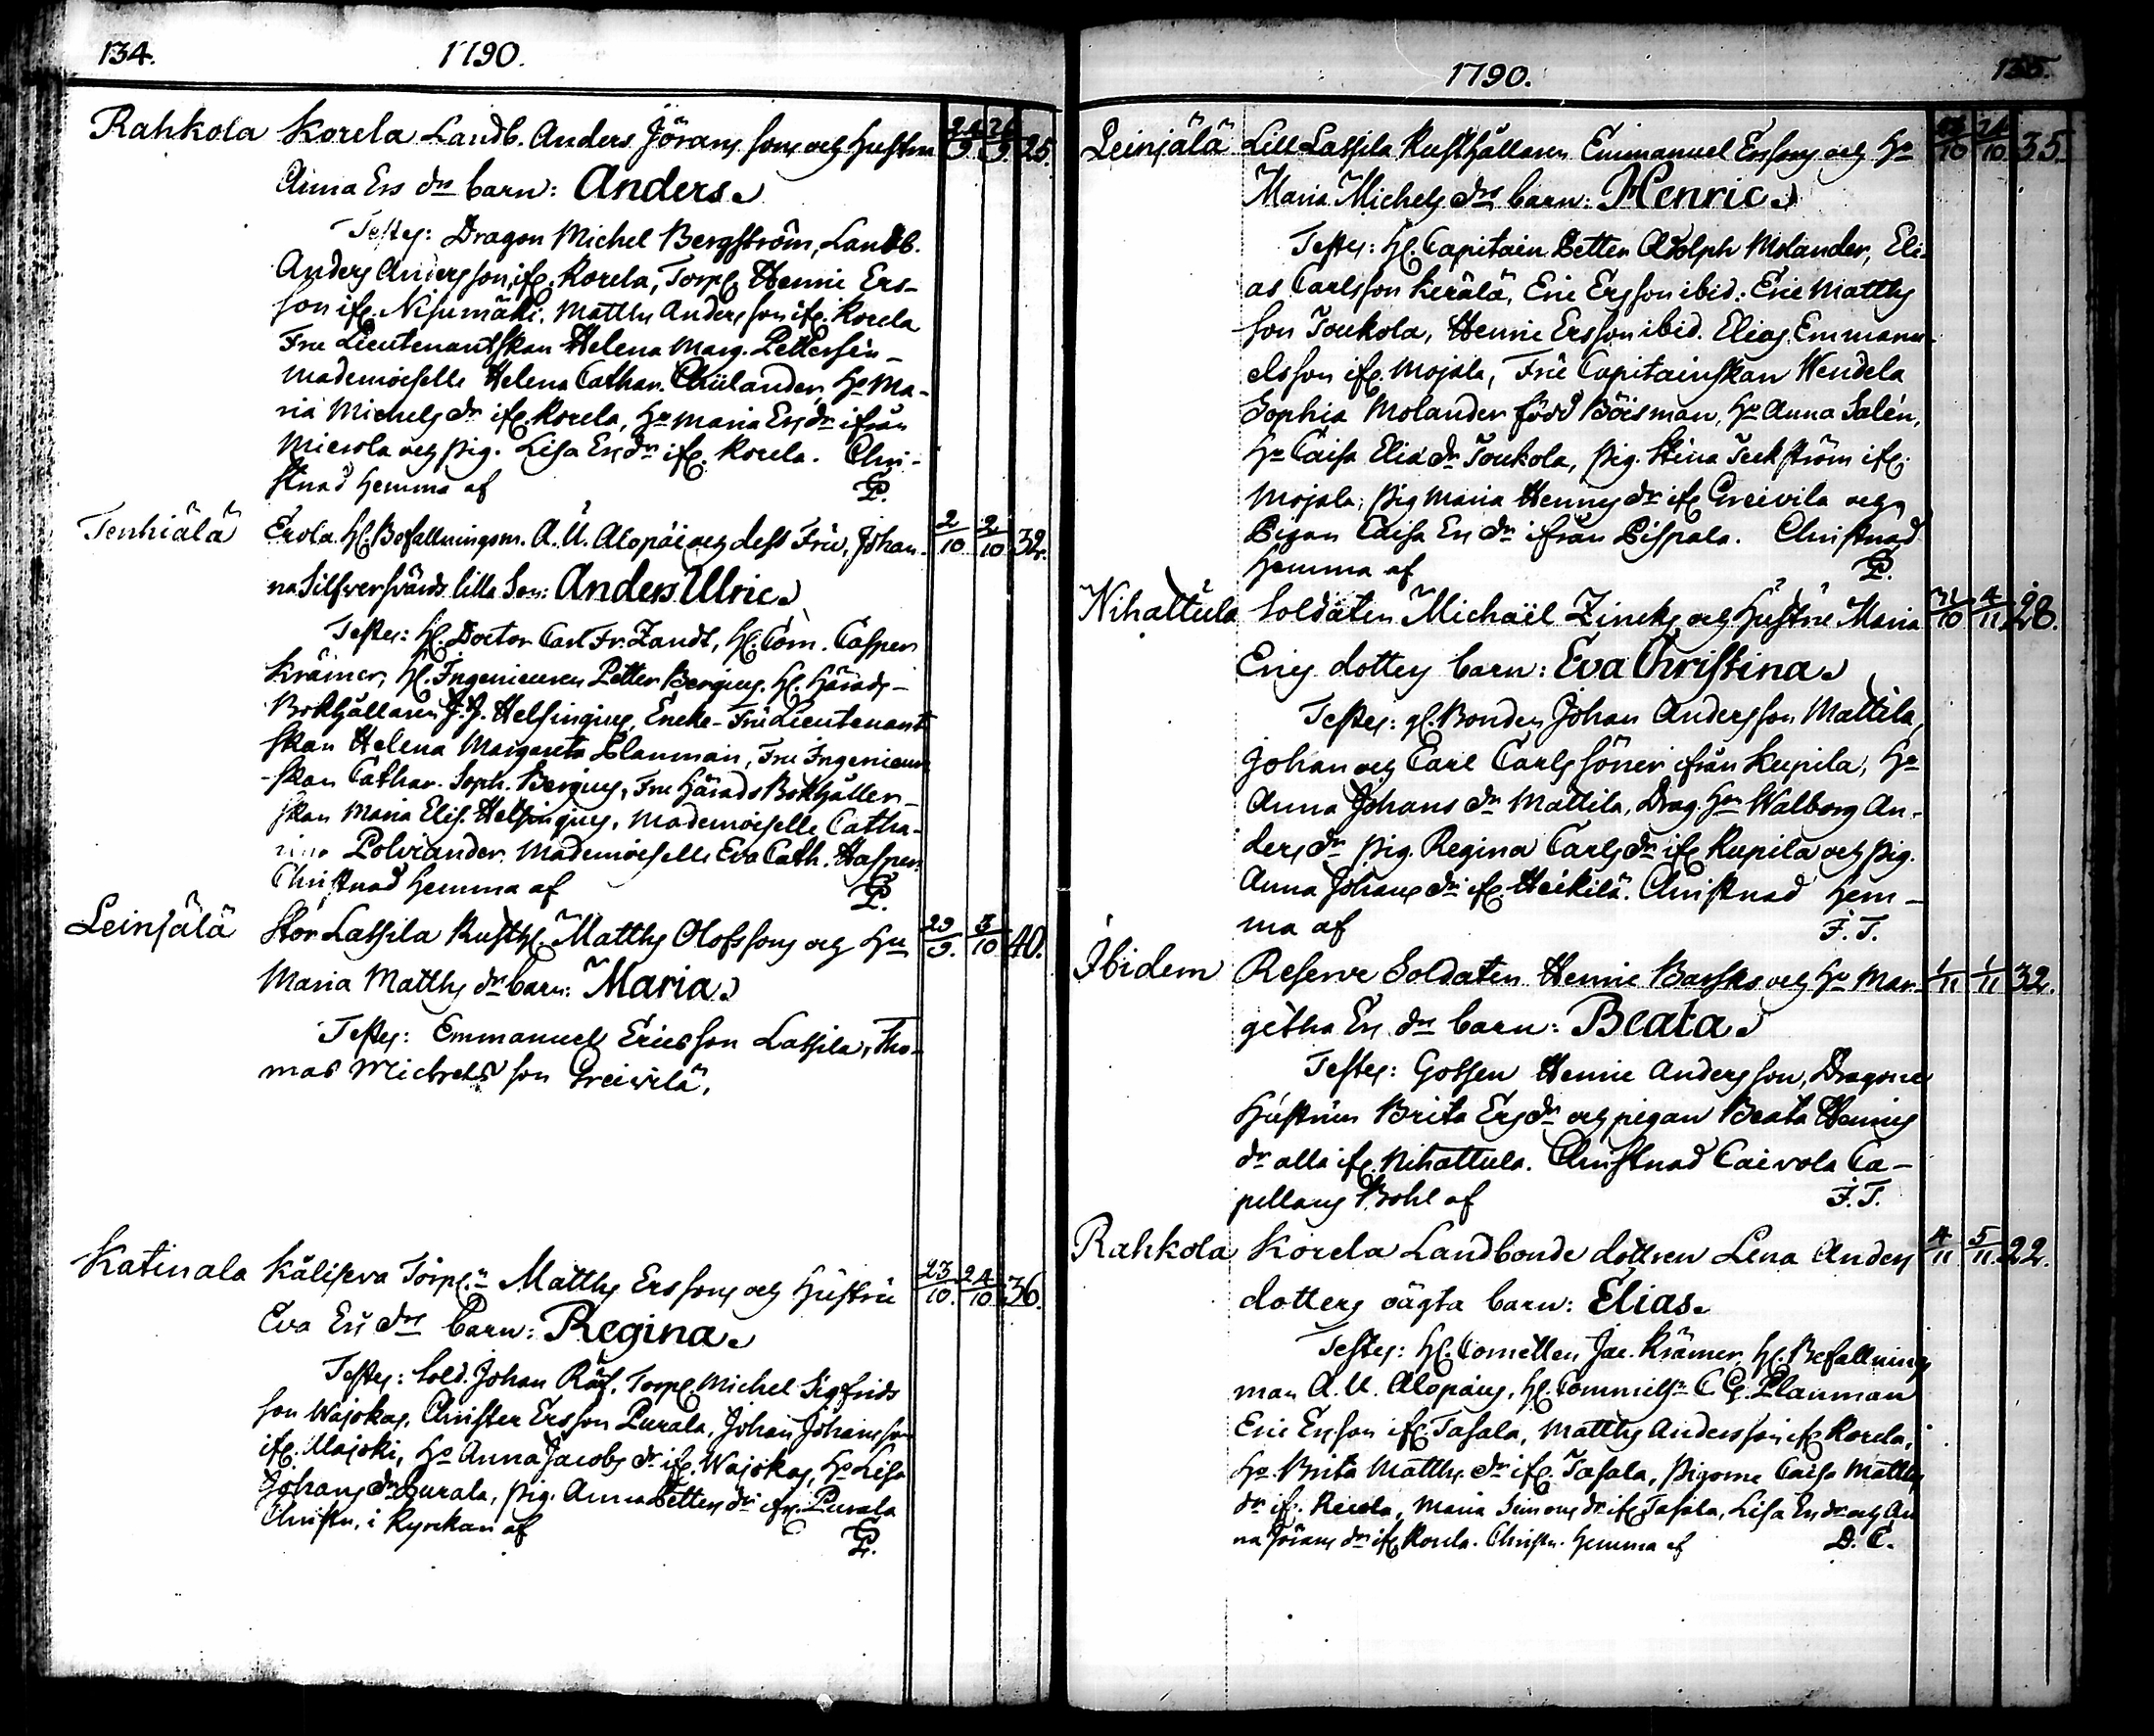 134. 1790.
Rahkola Korela Landb. Anders Jörans sons och hustru 24/9 26/9 25.
Anna Ers dr barn: Anders.
Testes: Dragon Michel Bergström, Landb.
Anders Andersson, ifr. Korela, Torp. Henric Ers-
son ifr. Nisumäki, Matths Andersson ifr. Korela
Fru Lieutenantskan Helena Marg. Pettersén
Mademoiselle Helena Cathar. Hr Ma-
ria Michels dr ifr. Korela, Hr Maria Ers dr ifrån
Mierola och pig. Lisa Ers dr ifr. Korela. Chri-
stnad hemma af P.
Tenhiälä Erola Hr. Befallningsm. A. U. Alopæi och dess Fru, Johan- 2/10 2/10 32.
na Silfversvärds lilla Son: Anders Ulric.
Testes: Hr. Doctor Carl Fr. Zandt, Hr. Com. Casper
Krämer, Hr. Ingenieuren Petter Bergius, Hr. Härads-
Bokhållaren J. J. Helsingius, Encke-Fru Lieutenant
skan Helena Margareta Planman, Fru Ingenieur
-skan Cathar. Soph. Bergius, Fru Härads Bokhåller-
skan Maria Elis. Helsingius, Mademoiselle Catha-
rina Polviander, Mademoiselle Eva Cath. Hasper
Christnad hemma af P.
Leinjälä Stor Lassila Rusth. Matths Olofssons och Hu 29/9. 3/10 40.
Maria Matths dr barn: Maria.
Testes: Emmanuel Ericsson Lassila, Tho-
mas Michels son Greivilä,
Katinala Käliseva Torp. Matths Erssons och hustru 23/10. 24/10 36.
Eva Ers drs barn: Regina.
Testes: Sold. Johan Räf, Torp. Michel Sigfrids
son Wajokas, Christer Ersson Purala, Johan Johansson
ifr. Uljoki, Hr Anna Jacobs dr ifr. Wajokas, Hr Lisa
Johans dr Purala, pig. Anna Petters dr ifr. Purala
Christn. i Kyrckan af P.
1790. 135.
Leinjälä Lill Lassila Rusthållaren Emmanuel Erssons och Hr 23/10 24/10 35.
Maria Michels drs barn: Henric.
Testes: Hr. Capitain Petter Adolph Molander, Eli-
as Carlsson Kerälä, Eric Ersson ibid. Eric Matths
son Toukola, Henric Ersson ibid. Elias Emmanu-
elsson ifr. Mojala, Fru Capitainskan Wendela
Sophia Molander född Böisman, Hr Anna Salén,
Hr Caisa Elia dr Toukola, pig. Stina Teckström ifr.
Mojala, pig Maria Henrics dr ifr Greivila och
Pigan Caisa Ers dr ifrån Pispala. Christnad
hemma af P.
Nihattula Soldaten Michaël Zincks och Hustru Maria 31/10 4/11 28.
Erics dotters barn: Eva Christina.
Testes: gl. Bonden Johan Andersson Mattila,
Johan och Carl Carls söner ifrån Kupila, Hr
Anna Johans dr Mattila, Drag. Hr Walborg An-
ders dr pig. Regina Carls dr ifr Kupila och pig.
Anna Johans dr ifr. Heikilä. Christnad hem-
ma af F. T.
Ibidem Reserve Soldaten Henric Barsks och Hr Mar- 1/11 1/11 32.
getha Ers drs barn: Beata.
Testes: Gossen Henric Andersson, Dragone
Hustrun Brita Ers dr och pigan Beata Henrics
dr alla ifr. Nihattula. Christnad Caivola Ca-
pellans Bohl af F. T.
Rahkola Korela Landbonde dottren Lena Anders 4/11 5/11 22.
dotters oägta barn: Elias.
Testes: Hr. Cornetten Jac. Krämer, Hr. Befallnings
man A. U. Alopæus, Hr. Commiss. C. G. Planman
Eric Ersson ifr. Tasala, Matths Andersson ifr Korela,
Hr. Brita Matths dr ifr. Tasala, pigorne Caisa Matths
dr ifr. Maria Simons dr ifr Tasala, Lisa Ers dr och An
na Jörans dr ifr. Korela. Christn. hemma af D. C.